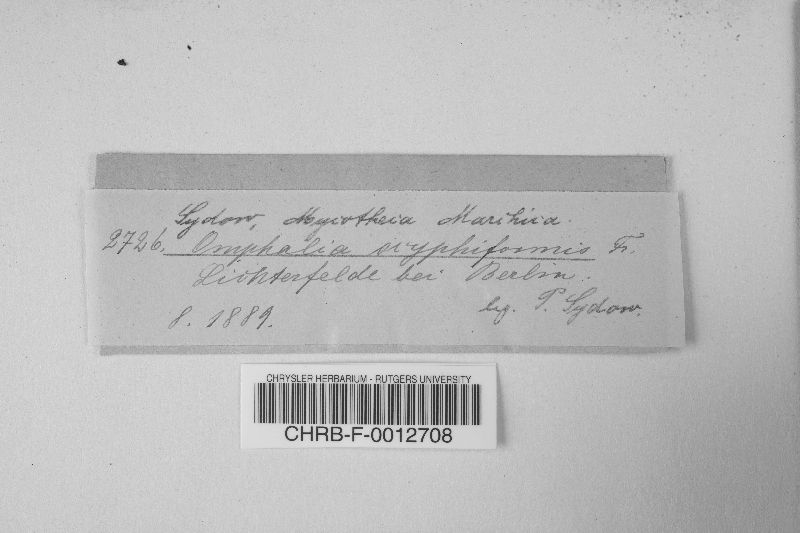 Sydow, Mycotheca Marchica.
2726. Omphalia scyphiformis Fr.
Lichterfelde bei Berlin.
8. 1889. leg. P. Sydow.
CHRYSLER HERBARIUM - RUTGERS UNIVERSITY
CHRB-F-0012708